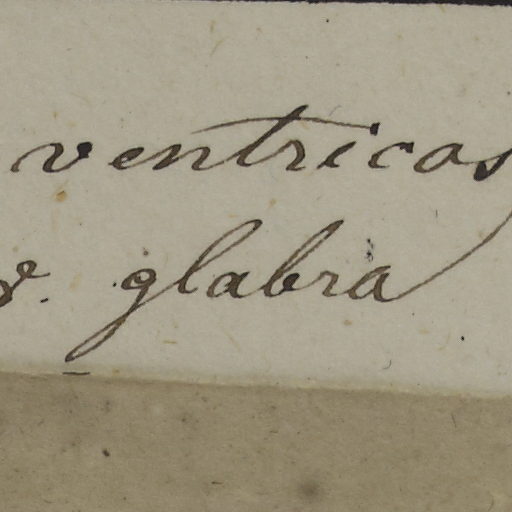 ventricos
γ. glabra